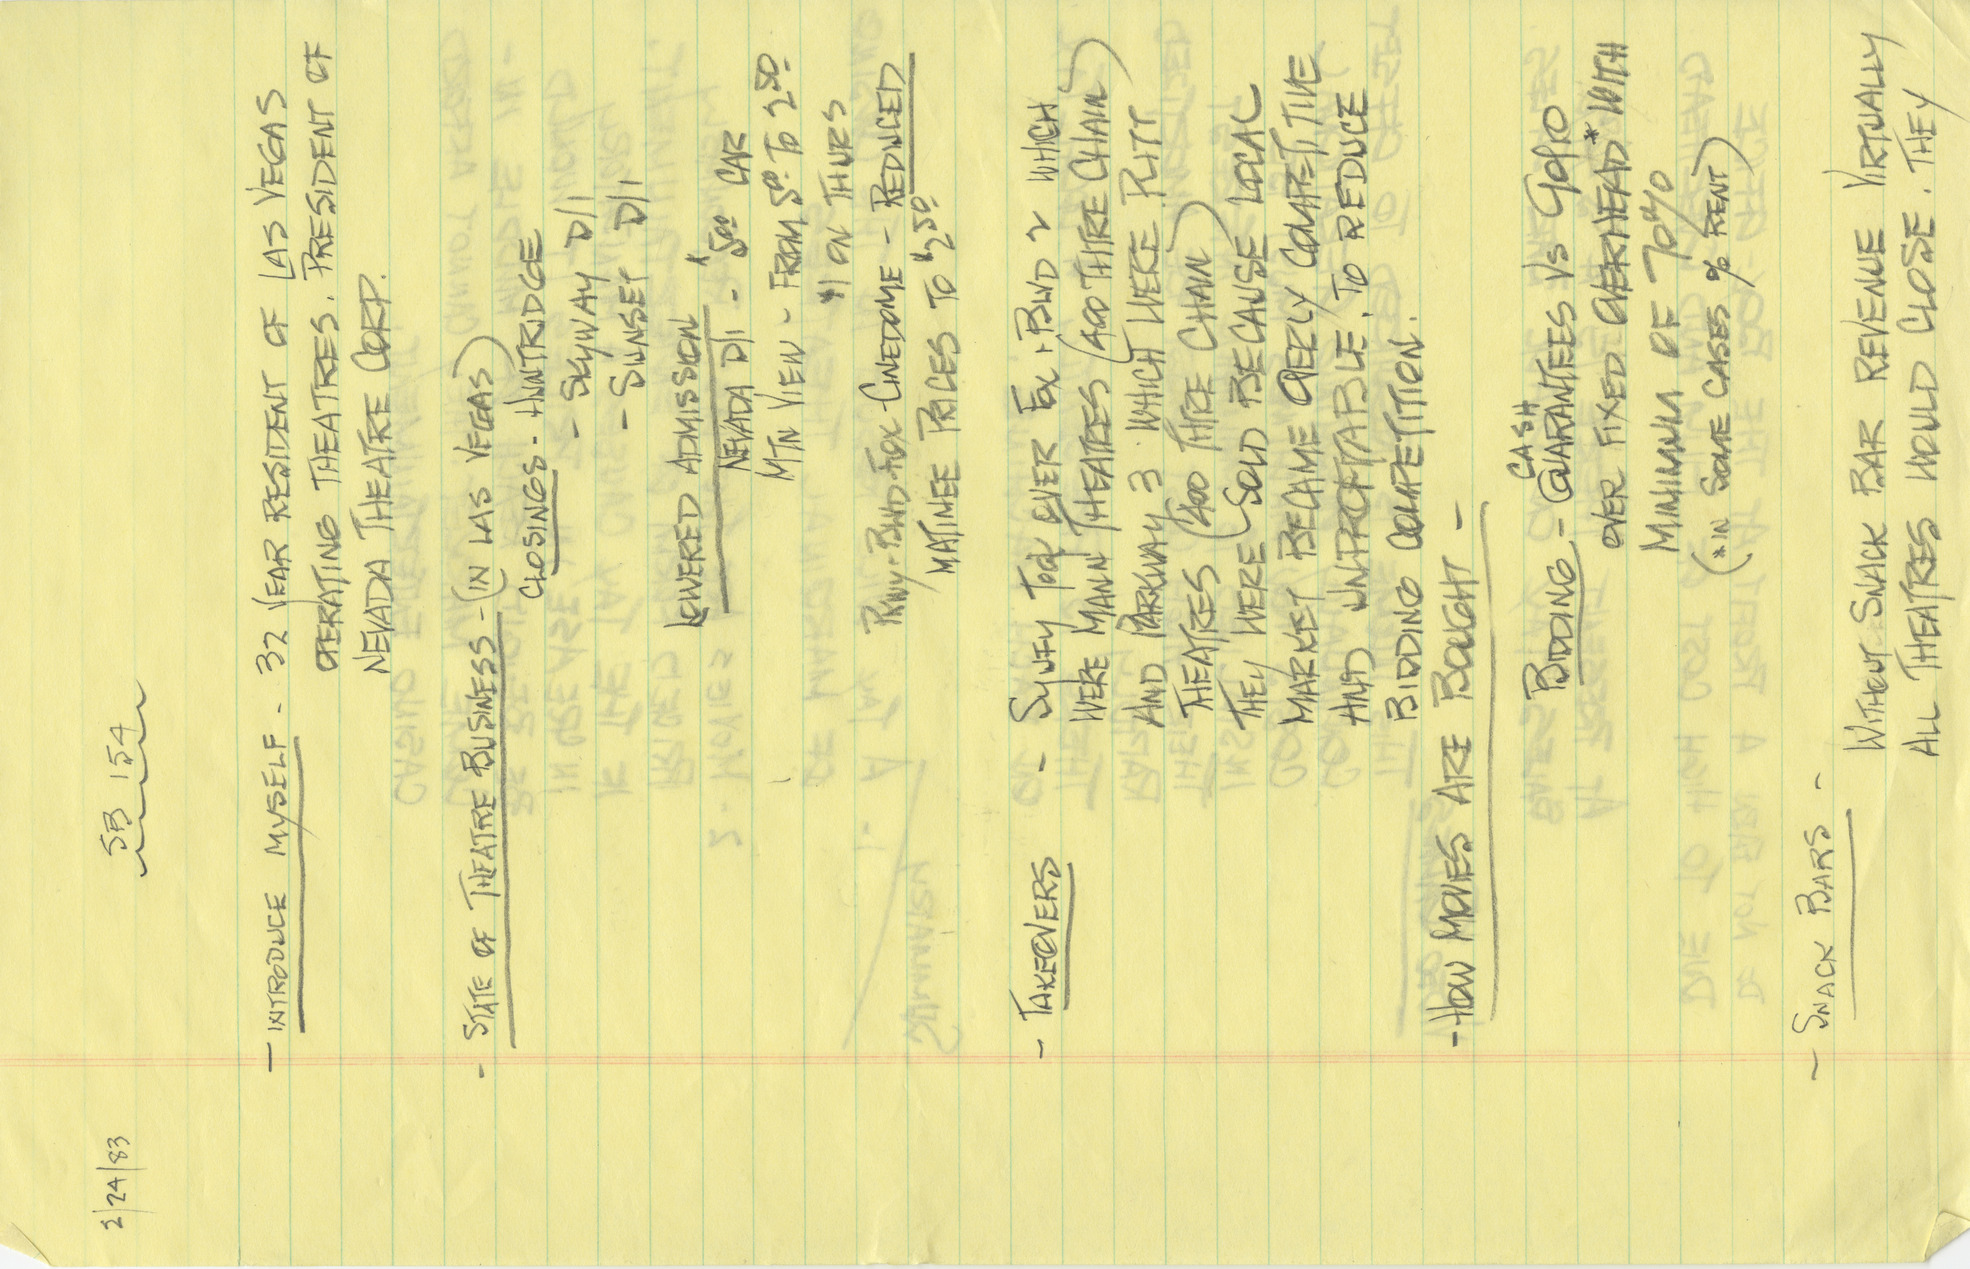 2/24/83
SB 154
- INTRODUCE MYSELF - 32 YEAR RESIDENT OF LAS VEGAS
OPERATING THEATRES. PRESIDENT OF
NEVADA THEATRE CORP.
- STATE OF THEATRE BUSINESS - (IN LAS VEGAS)
CLOSINGS - HUNTRIDGE
- SKYWAY D/I
- SUNSET D/I
LOWERED ADMISSION
NEVADA D/I - $5.00 CAR
MTN VIEW - FROM 5.00 TO 2.50
$1 ON THURS
PKWY - BLVD - FOX - CINEDOME - REDUCED
MATINEE PRICES TO $2.50
- TAKEOVERS - SYUFY TOOK OVER FOX, BLVD 2 WHICH
WERE MANN THEATRES (400 THTRE CHAIN)
AND PARKWAY 3 WHICH WERE PLITT
THEATRES (400 THTRE CHAIN)
THEY WERE SOLD BECAUSE LOCAL
MARKET BECAME OVERLY COMPETITIVE
AND UNPROFITABLE, TO REDUCE
BIDDING COMPETITION.
- HOW MOVIES ARE BOUGHT -
BIDDING - CASH GUARANTEES VS 90/10
OVER FIXED OVERHEAD* WITH
MINIMUM OF 70%
(* IN SOME CASES % RENT)
- SNACK BARS -
WITHOUT SNACK BAR REVENUE VIRTUALLY
ALL THEATRES WOULD CLOSE. THEY